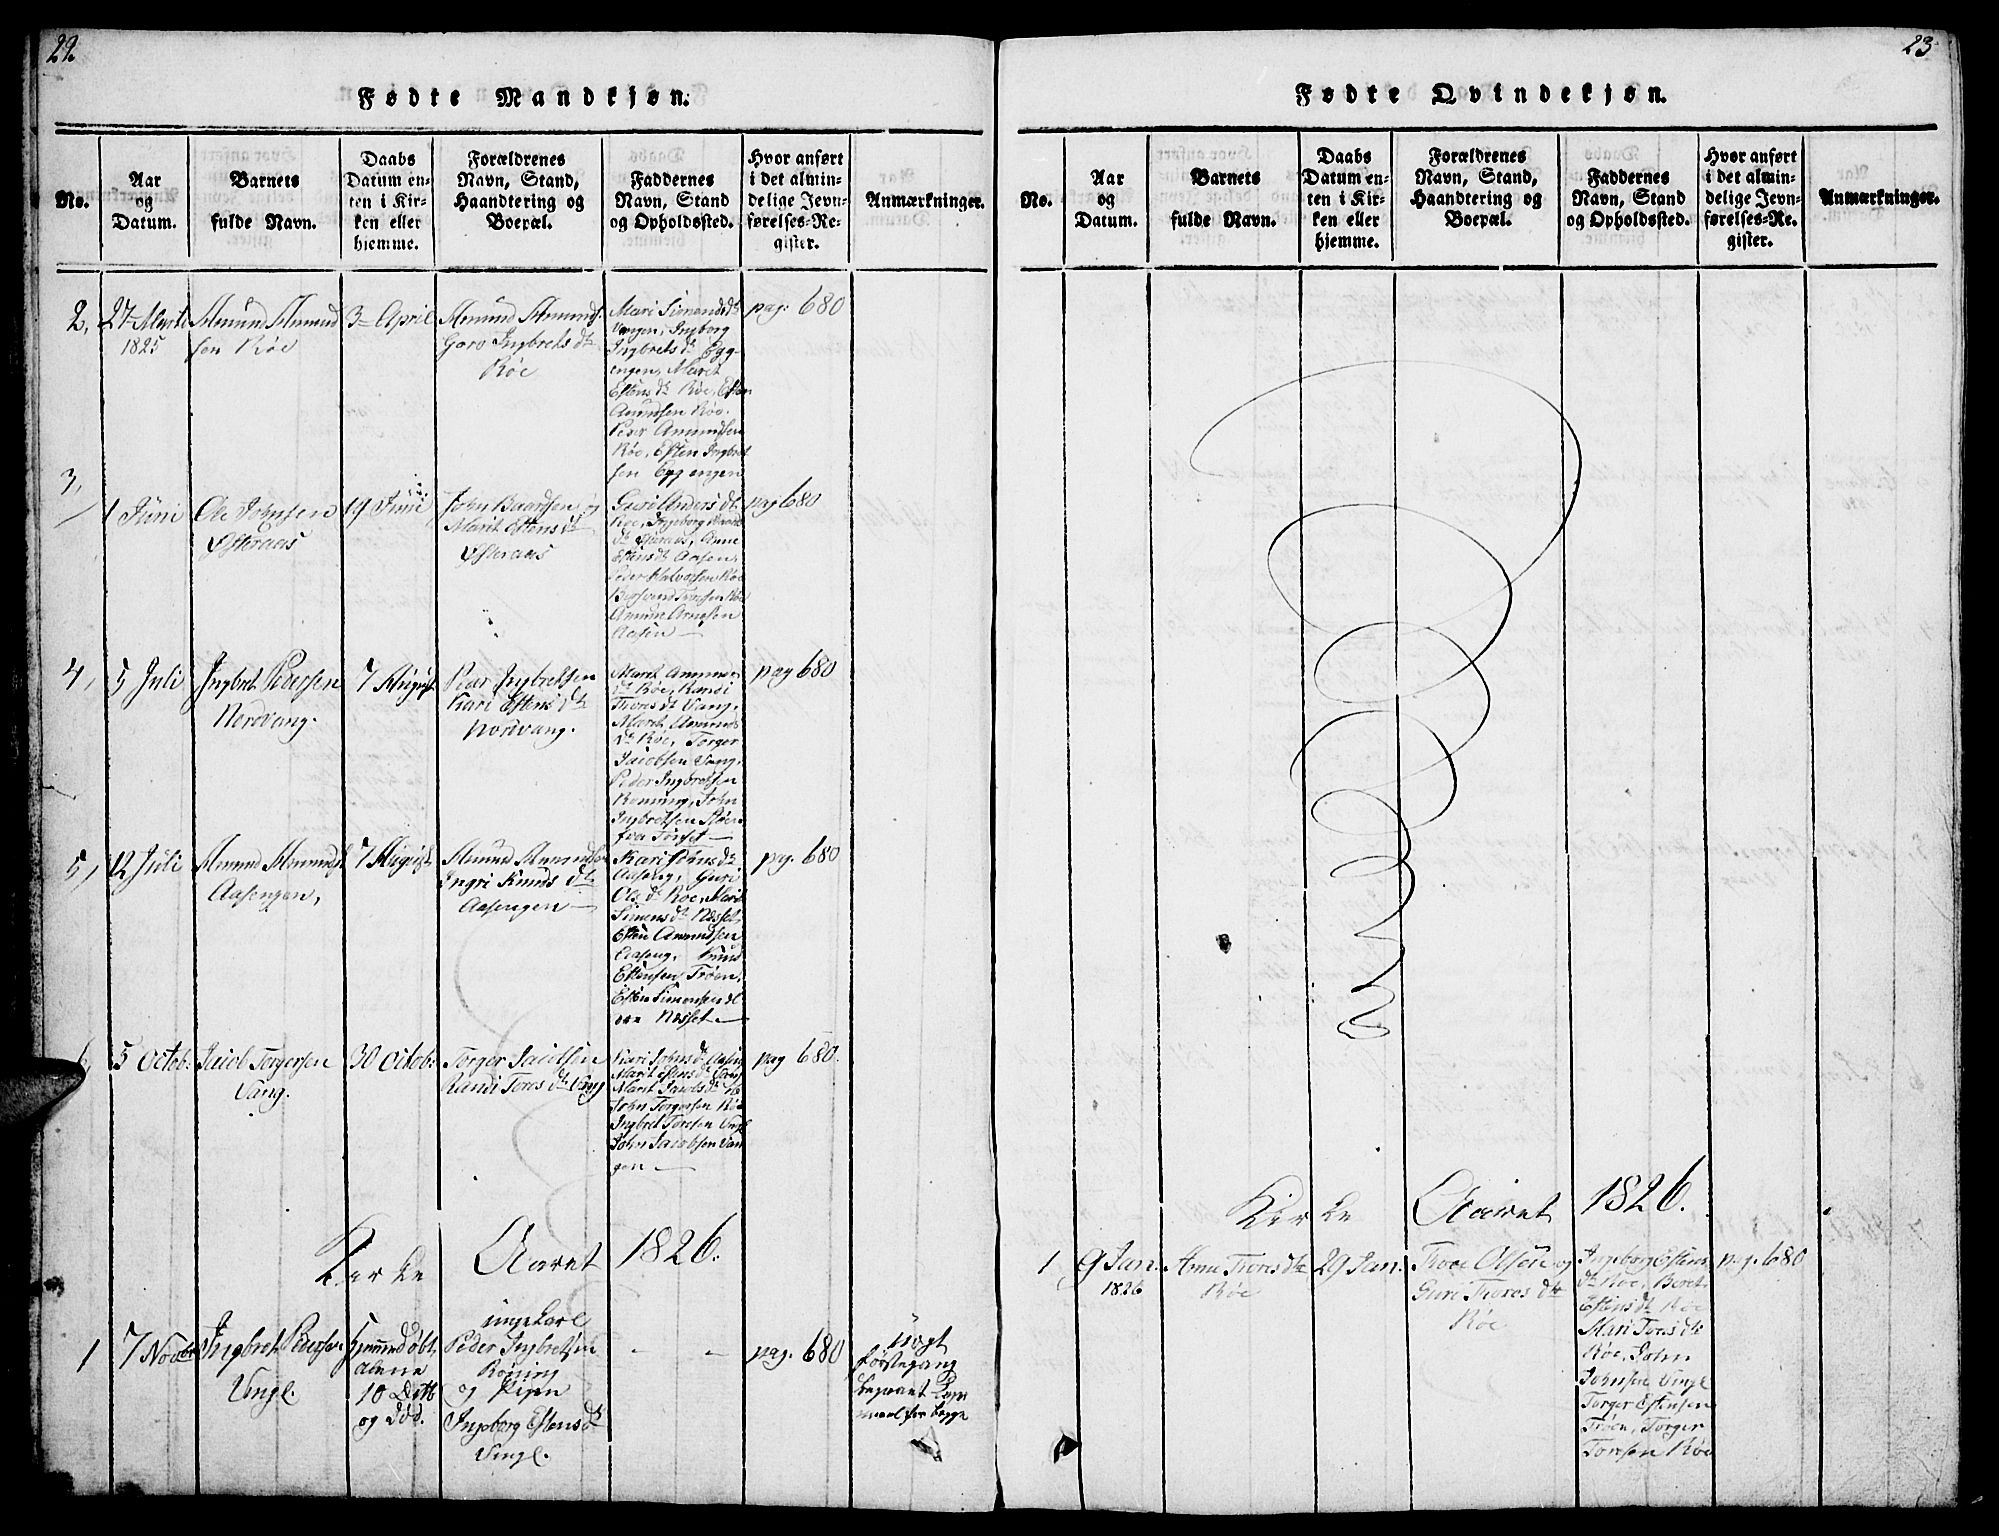 22.
Fødte Mandkjøn.
No.
Aar
og
Datum.
Barnets
fulde Navn.
Daabs
Datum en-
ten i Kir-
ken eller
hjemme.
Forældrenes
Navn, Stand,
Haandtering og
Boepæl.
Faddernes
Navn, Stand
og Opholdssted.
Hvor anført
i det almin-
delige Jevn-
førelses-Re-
gister.
Anmærkninger.
2,
27 Marti
1825
Amund Amund
sen Röe
3 April
Amund Amunds.
Goro Ingbrets dtr
Röe
Mari Simonsdtr
Vangen, Ingborg
Ingbrets dtr Egg-
engen, Marit
Estens dtr Röe, Esten
Amundsen Röe.
Peder Amundsen
Röe, Esten Ingbret
sen Eggengen
pag. 680
3,
1 Juni
Ole Johnsen
Østeraas
19 Junii
John Baardsen og
Marit Estens dtr
Østeraas
Guri Anders dtr
Röe, Ingeborg
dtr Østeraas, Anne
Estens dtr Aasen,
Peder Halvorsen Röe
Toresen Röe
Amun Arnesen
Aasen
pag 680
4,
5 Juli
Ingbret Pedersen
Nordvang.
7 August
Peder Ingbretsen
Kari Estens dtr
Nordvang.
Marit Ammun
dtr Röe, Randi
Tores dt Vang.
Marit Amunds
dtr Röe, Torger
Jacobsen Vang.
Peder Ingbretsen
Roning, John
Ingbretsen
fra Tönset
pag 680
5,
12 Juli
Amund Amunds.
Aasengen,
7 August
Amund Amundsen
Ingri Knuds dtr
Aasengen
Kari dtr
Aaseng, Guri
Ols dtr Röe, Mari
Simens dtr Næsset,
Esten Amundsen
Aaseng, Knud
Estensen Tröen,
Esten Simensen
Næsset
pag. 680
6,
5 Octob.
Jacob Torgersen
Vang.
30 Octob.
Torger Jacobsen
Randi Tores dtr Vang
Kari Johns dtr Aaseng
Marit Estens dtr Vang
Marit Jacobs dtr
John Torgersen Röe
Ingbret Toresen Vingl
John Jacobsen Van
gen
pag 680.
Kirke Aaret 1826.
1
7 Novbr
Ingbret Pedersen
Vingl.
Hjemmedøbt
alene
10
og död.
ungekarl
Peder Ingbretsen
Röning
og Pigen
Ingeborg Estens dtr
Vingl.
pag. 680
uægt
förstegang
begaaet Leier
maal for begge
23
Fødte Qvindekjøn.
No.
Aar
og
Datum.
Barnets
fulde Navn.
Daabs
Datum en-
ten i Kir-
ken eller
hjemme.
Forældrenes
Navn, Stand,
Haandtering og
Boepæl.
Faddernes
Navn, Stand
og Opholdssted.
Hvor anført
i det almin-
delige Jevn-
førelses-Re-
gister.
Anmærkninger.
Kirke Aaret 1826.
1
9 Jan.
1826
Anne Toresdtr
Röe
29 Jan.
Tore Olsen og
Guri Tores dtr
Röe
Ingeborg Estens
dtr Röe, Beret
Estens dtr Röe
Mari Tores dtr
Röe, John
Johnsen Vingl
Torger Estensen
Tröen, Torger
Toresen Röe
pag. 680